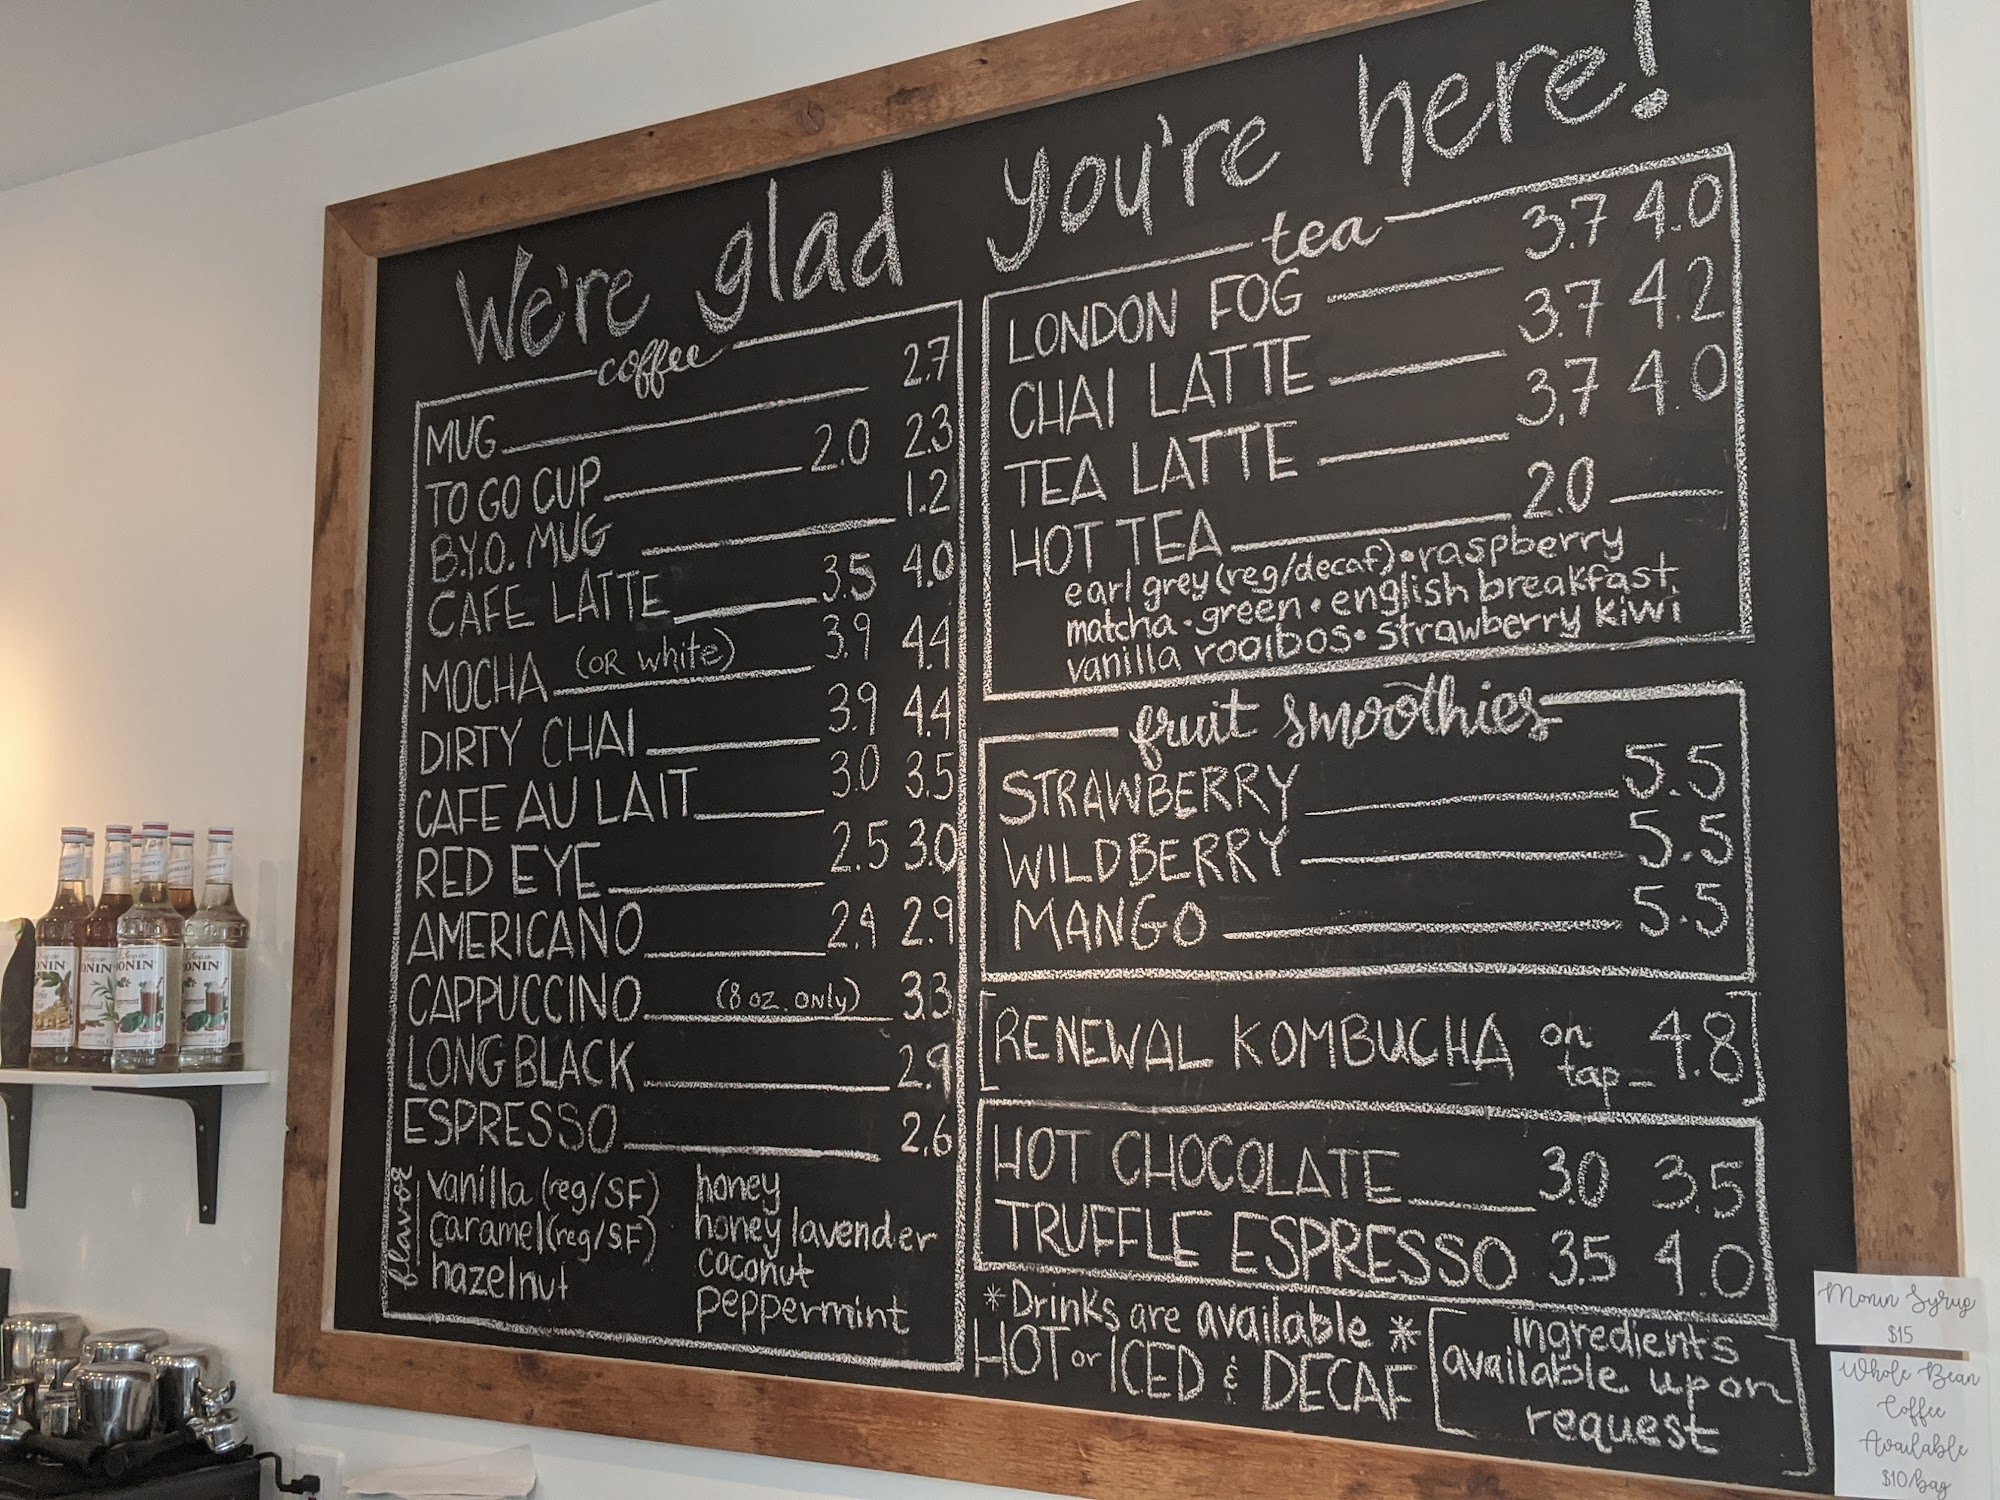 We're glad you're here!
coffee
MUG 2.7
TO GO CUP 2.0 2.3
B.Y.O. MUG 1.2
CAFE LATTE 3.5 4.0
MOCHA (OR white) 3.9 4.4
DIRTY CHAI 3.9 4.4
CAFE AU LAIT 3.0 3.5
RED EYE 2.5 3.0
AMERICANO 2.4 2.9
CAPPUCCINO (8 oz. only) 3.3
LONG BLACK 2.9
ESPRESSO 2.6
flavor
vanilla (reg/SF)
caramel (reg/SF)
hazelnut
honey
honey lavender
coconut
peppermint
tea
LONDON FOG 3.7 4.0
CHAI LATTE 3.7 4.2
TEA LATTE 3.7 4.0
HOT TEA 2.0
earl grey (reg/decaf) • raspberry
matcha • green • english breakfast
vanilla rooibos • strawberry kiwi
fruit smoothies
STRAWBERRY 5.5
WILDBERRY 5.5
MANGO 5.5
RENEWAL KOMBUCHA on tap 4.8
HOT CHOCOLATE 3.0 3.5
TRUFFLE ESPRESSO 3.5 4.0
*Drinks are available *
HOT or ICED & DECAF
ingredients
available upon
request
Monin Syrup
$15
Whole Bean
Coffee
Available
$10/bag
MONIN